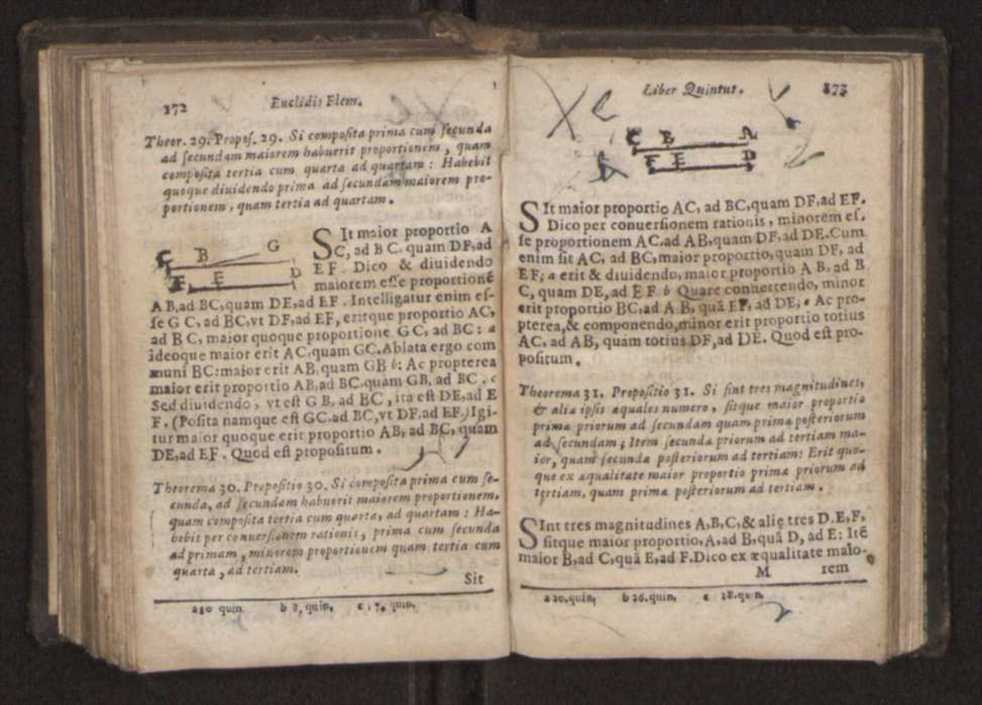 172 Euclidis Elem.
Theor. 29. Propos. 29. Si composita prima cum secunda
ad secundam maiorem habuerit proportionem, quam
composita tertia cum quarta ad quartam: Habebit
quoque diuidendo prima ad secundam maiorem pro-
portionem, quam tertia ad quartam.
C B G
F E D
SIt maior proportio A
C, ad B C. quam DF, ad
EF. Dico & diuidendo
maiorem esse proportionē
A B, ad BC, quam DE, ad EF. Intelligatur enim es-
se G C, ad BC, vt DF, ad EF, eritque proportio AC,
ad B C, maior quoque proportione GC, ad BC: a
ideoque maior erit AC, quam GC. Ablata ergo com
muni BC: maior erit AB, quam GB b: Ac propterea
maior erit proportio AB, ad BC, quam GB, ad BC. c
Sed diuidendo, vt est G B, ad BC, ita est DE, ad E
F. (Posita namque est GC. ad BC, vt DF. ad EF.) Igi-
tur maior quoque erit proportio AB, ad BC, quam
DE, ad EF. Quod est propositum.
Theorema 30. Propositio 30. Si composita prima cum se-
cunda, ad secundam habuerit maiorem proportionem,
quam composita tertia cum quarta, ad quartam: Ha-
bebit per conuersionem rationis, prima cum secunda
ad primam, minorem proportionem quam tertia cum
quarta, ad tertiam.
Sit
a 10 quin. b 8, quin, c 17. quin,
Liber Quintus. 173
C B A
F E D
SIt maior proportio AC, ad BC, quam DF, ad EF.
Dico per conuersionem rationis, minorem es-
se proportionem AC. ad AB, quam DF, ad DE. Cum
enim sit AC, ad BC, maior proportio, quam DF, ad
EF; a erit & diuidendo, maior proportio A B, ad B
C, quam DE, ad EF b Quare conuertendo, minor
erit proportio BC, ad A B, quā EF, ad DE; c Ac pro-
pterea, & componendo, minor erit proportio totius
AC, ad AB, quam totius DF, ad DE. Quod est pro-
positum.
Theorema 31. Propositio 31. Si sint tres magnitudines,
& alia ipsis æquales numero, sitque maior proportio
prima priorum ad secundam quam prima posteriorum
ad secundam; Item secunda priorum ad tertiam ma-
ior, quam secunda posteriorum ad tertiam: Erit quo-
que ex æqualitate maior proportio prima priorum ad
tertiam, quam prima posteriorum ad tertiam.
SInt tres magnitudines A, B, C, & alię tres D, E, F,
sitque maior proportio, A, ad B, quā D, ad E: Itē
maior B, ad C, quā E, ad F. Dico ex æqualitate maio-
M rem
a 20. quin, b 26. quin, c 28. quin.